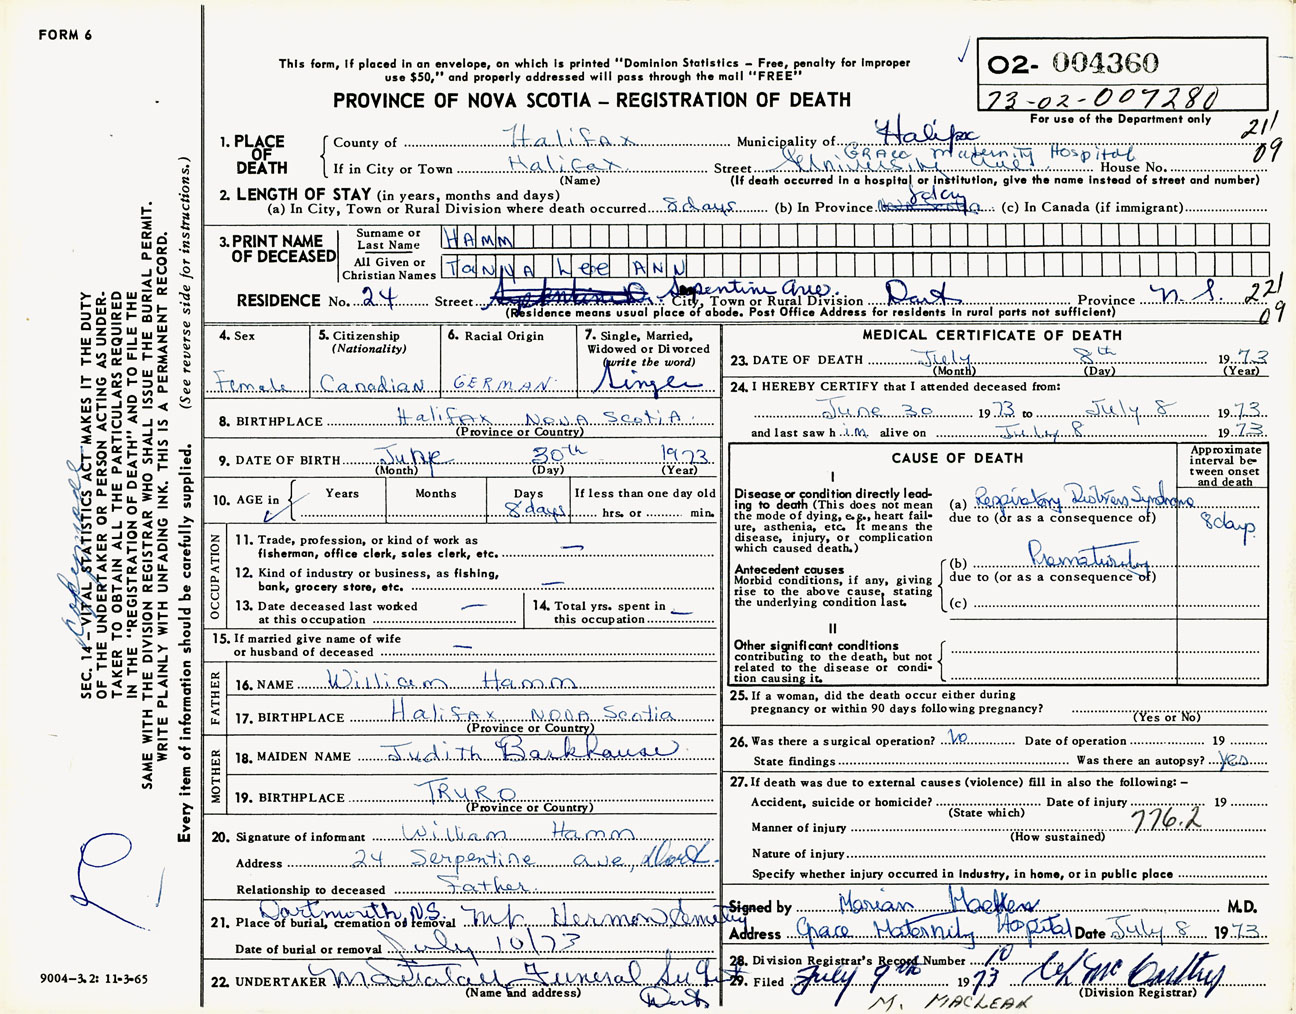 FORM 6
This form, if placed in an envelope, on which is printed "Dominion Statistics – Free, penalty for improper
use $50," and properly addressed will pass through the mail "FREE"
PROVINCE OF NOVA SCOTIA – REGISTRATION OF DEATH
02- 004360
73-02-007280
For use of the Department only
211
09
1. PLACE OF DEATH
County of Halifax Municipality of Halifax
GRACE Maternity Hospital
If in City or Town Halifax Street University Ave. House No.
(Name) (If death occurred in a hospital or institution, give the name instead of street and number)
2. LENGTH OF STAY (in years, months and days)
8 day
(a) In City, Town or Rural Division where death occurred 8 days (b) In Province Nova Scotia (c) In Canada (if immigrant)
3. PRINT NAME OF DECEASED
Surname or Last Name HAMM
All Given or Christian Names TANNA Lee ANN
RESIDENCE No. 24 Street Serpentine Ave. City, Town or Rural Division Dart Province N.S.
221
09
(Residence means usual place of abode. Post Office Address for residents in rural parts not sufficient)
4. Sex
Female
5. Citizenship (Nationality)
Canadian
6. Racial Origin
GERMAN
7. Single, Married, Widowed or Divorced (write the word)
Single
8. BIRTHPLACE Halifax NOVA Scotia
(Province or Country)
9. DATE OF BIRTH June 30th 1973
(Month) (Day) (Year)
10. AGE in
Years Months Days If less than one day old
8 days hrs. or min.
OCCUPATION
11. Trade, profession, or kind of work as
fisherman, office clerk, sales clerk, etc. —
12. Kind of industry or business, as fishing,
bank, grocery store, etc. —
13. Date deceased last worked
at this occupation —
14. Total yrs. spent in
this occupation —
15. If married give name of wife
or husband of deceased —
FATHER
16. NAME William Hamm
17. BIRTHPLACE Halifax NOVA Scotia
(Province or Country)
MOTHER
18. MAIDEN NAME Judith Barkhouse
19. BIRTHPLACE TRURO
(Province or Country)
20. Signature of informant William Hamm
Address 24 Serpentine ave, Dart.
Relationship to deceased Father
Dartmouth, N.S.
21. Place of burial, cremation or removal Mt. Hermon Cemetery
Date of burial or removal July 10/73
22. UNDERTAKER Funeral
(Name and address)
Dart
MEDICAL CERTIFICATE OF DEATH
23. DATE OF DEATH July 8th 1973
(Month) (Day) (Year)
24. I HEREBY CERTIFY that I attended deceased from:
June 30 1973 to July 8 1973
and last saw him alive on July 8 1973
CAUSE OF DEATH
Approximate interval between onset and death
I
Disease or condition directly leading to death (This does not
mean the mode of dying, e.g., heart failure, asthenia, etc. It means the
disease, injury, or complication
which caused death.)
(a) Respiratory Distress Syndrome
due to (or as a consequence of)
8 days
Antecedent causes
Morbid conditions, if any, giving
rise to the above cause, stating
the underlying condition last.
(b) Prematurity
due to (or as a consequence of)
(c)
II
Other significant conditions
contributing to the death, but not
related to the disease or condition causing it.
25. If a woman, did the death occur either during
pregnancy or within 90 days following pregnancy?
(Yes or No)
26. Was there a surgical operation? No Date of operation 19
State findings Was there an autopsy? yes
27. If death was due to external causes (violence) fill in also the following: –
Accident, suicide or homicide? Date of injury 19
(State which)
Manner of injury 776.2
(How sustained)
Nature of injury
Specify whether injury occurred in industry, in home, or in public place
Signed by Marian M.D.
Address Grace Maternity Hospital Date July 8 1973
28. Division Registrar's Record Number 10
29. Filed July 9th 1973
(Division Registrar)
M. MACLEAN
SEC. 14 – VITAL STATISTICS ACT MAKES IT THE DUTY
OF THE UNDERTAKER OR PERSON ACTING AS UNDER-
TAKER TO OBTAIN ALL THE PARTICULARS REQUIRED
IN THE "REGISTRATION OF DEATH" AND TO FILE THE
SAME WITH THE DIVISION REGISTRAR WHO SHALL ISSUE THE BURIAL PERMIT.
WRITE PLAINLY WITH UNFADING INK. THIS IS A PERMANENT RECORD.
Every item of information should be carefully supplied. (See reverse side for instructions.)
9004–3.2: 11-3-65